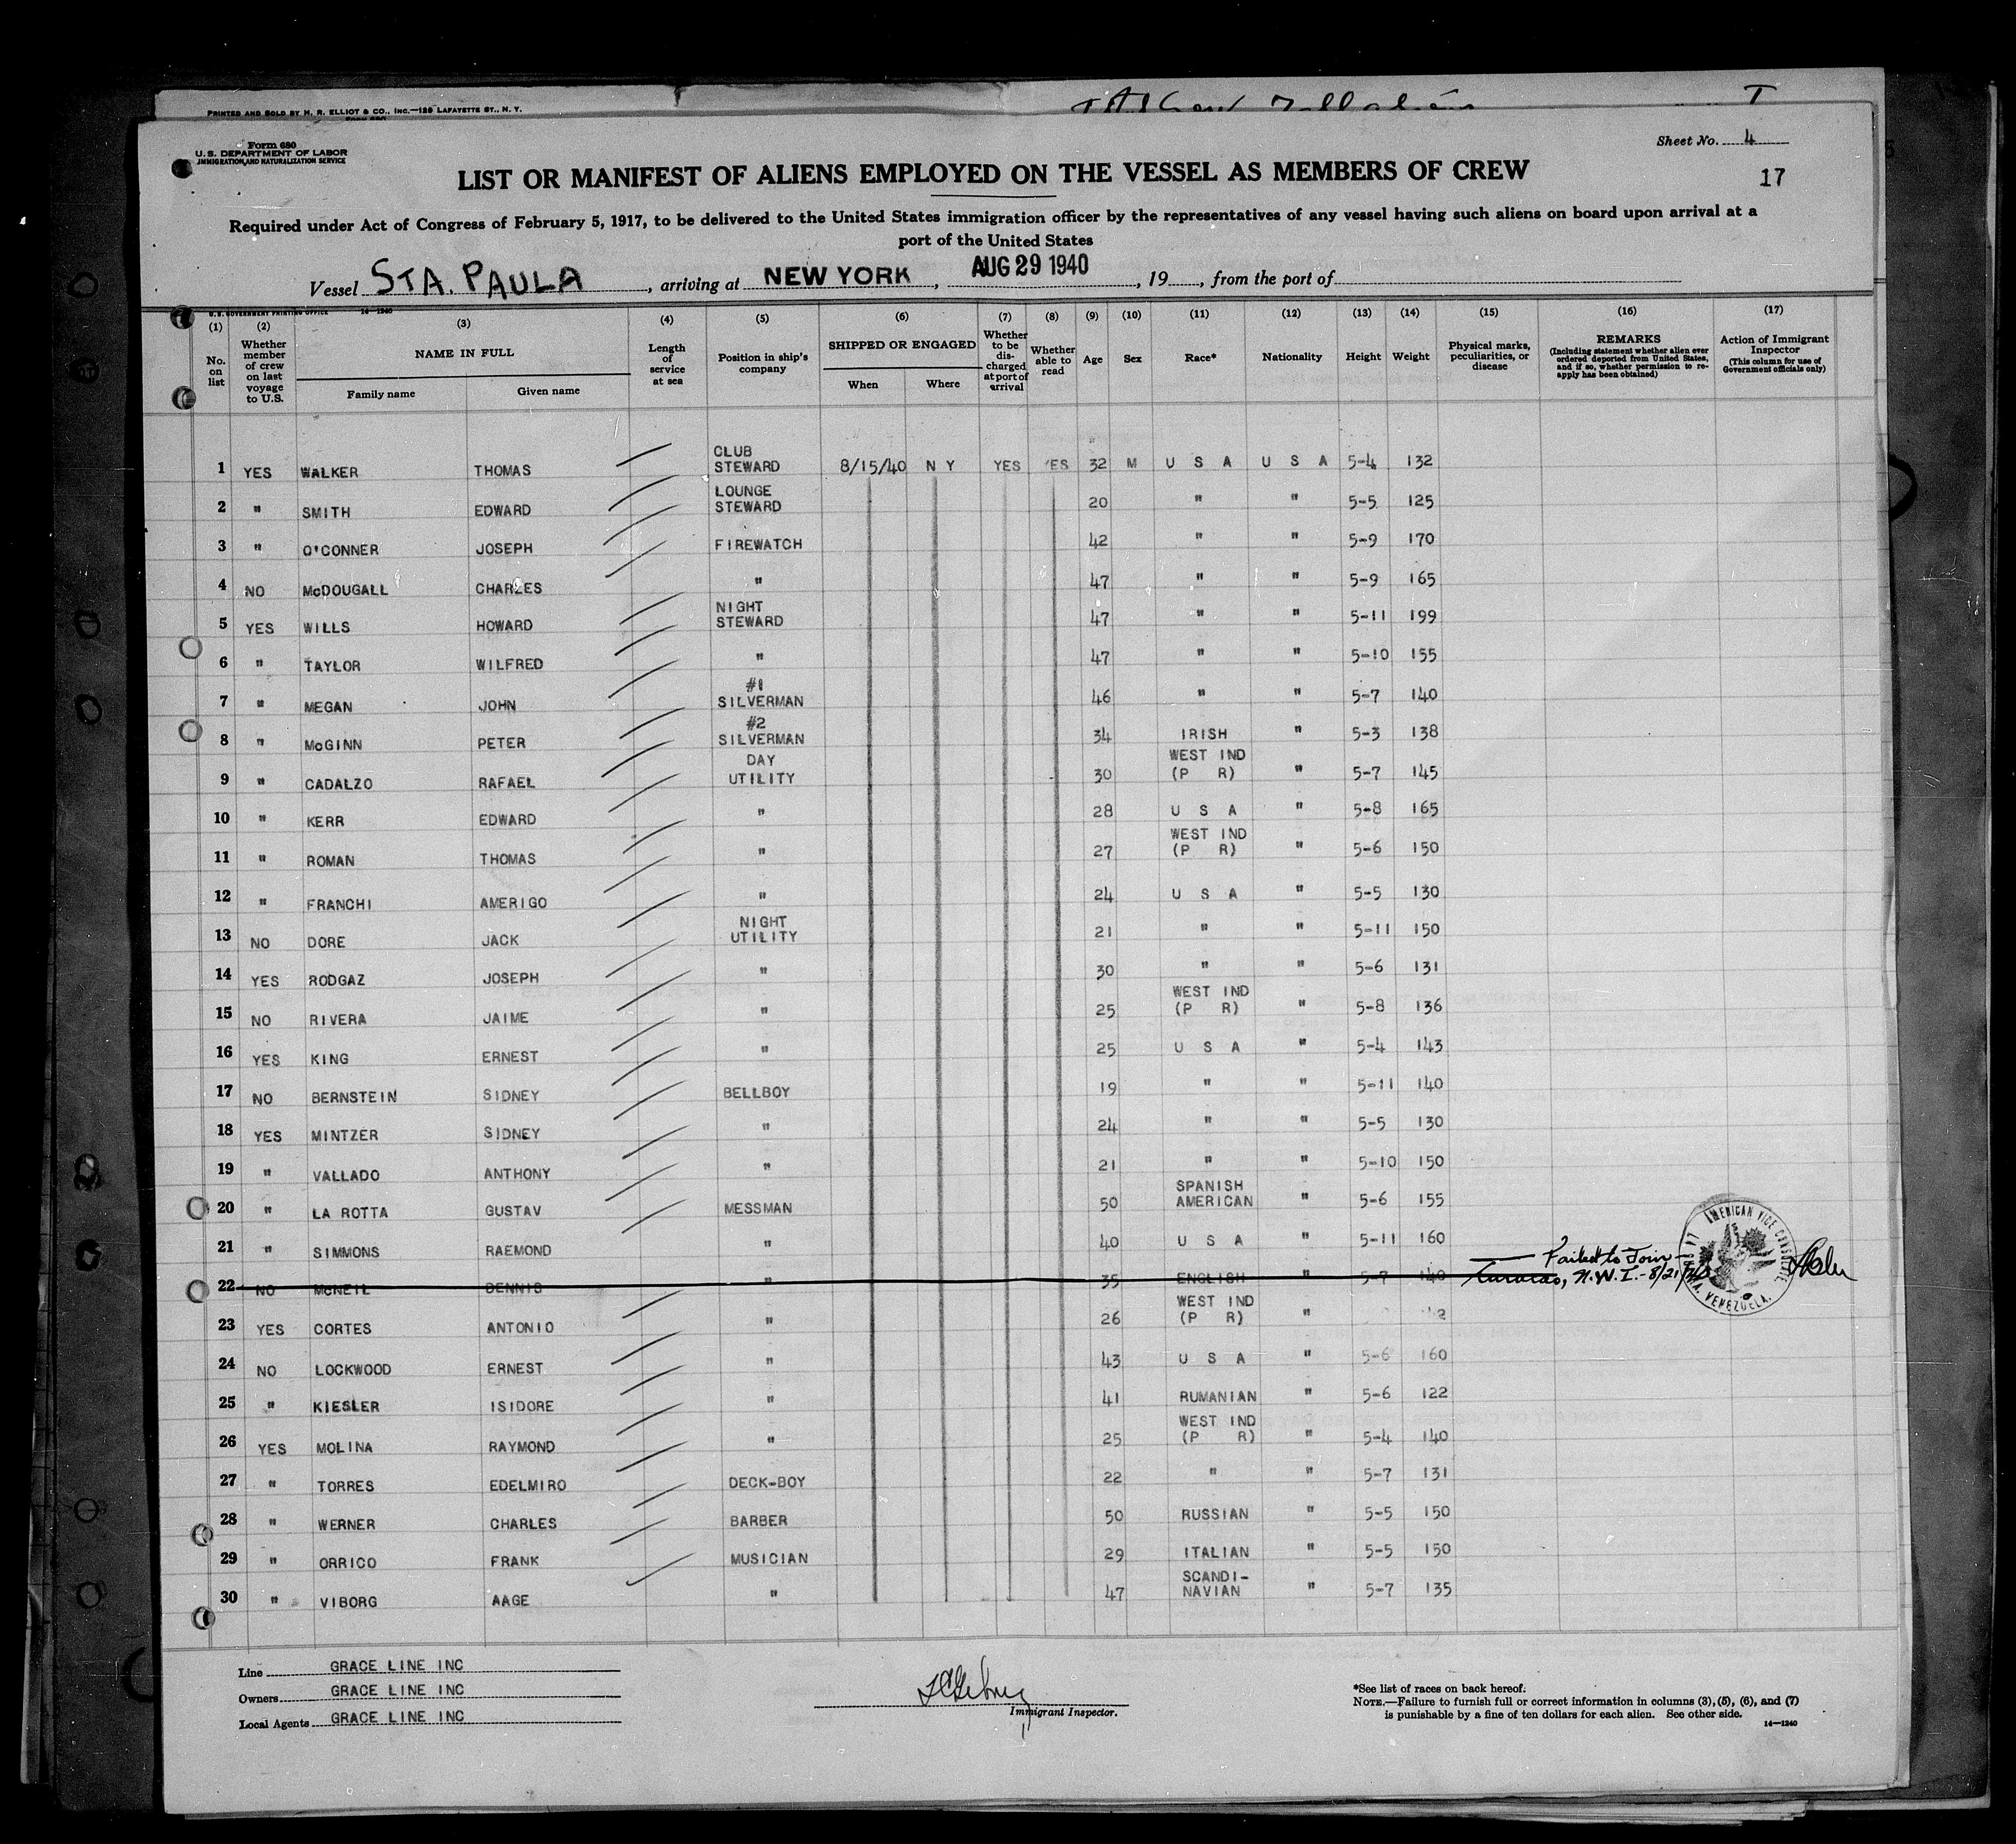 PRINTED AND SOLD BY H. R. ELLIOT & CO., INC.—129 LAFAYETTE ST., N. Y.
Form 680
U. S. DEPARTMENT OF LABOR
IMMIGRATION AND NATURALIZATION SERVICE
Sheet No. 4
17
LIST OR MANIFEST OF ALIENS EMPLOYED ON THE VESSEL AS MEMBERS OF CREW
Required under Act of Congress of February 5, 1917, to be delivered to the United States immigration officer by the representatives of any vessel having such aliens on board upon arrival at a
port of the United States
Vessel STA. PAULA, arriving at NEW YORK, AUG 29 1940, 19, from the port of
U. S. GOVERNMENT PRINTING OFFICE 14—1240
(1) (2) (3) (4) (5) (6) (7) (8) (9) (10) (11) (12) (13) (14) (15) (16) (17)
No. on list
Whether member of crew on last voyage to U.S.
NAME IN FULL
Family name
Given name
Length of service at sea
Position in ship's company
SHIPPED OR ENGAGED
When
Where
Whether to be discharged at port of arrival
Whether able to read
Age
Sex
Race*
Nationality
Height
Weight
Physical marks, peculiarities, or disease
REMARKS
(Including statement whether alien ever ordered deported from United States, and if so, whether permission to re-apply has been obtained)
Action of Immigrant Inspector
(This column for use of Government officials only)
1 YES WALKER THOMAS CLUB STEWARD 8/15/40 N Y YES YES 32 M U S A U S A 5-4 132
2 " SMITH EDWARD LOUNGE STEWARD 20 " " 5-5 125
3 " O'CONNER JOSEPH FIREWATCH 42 " " 5-9 170
4 NO McDOUGALL CHARLES " 47 " " 5-9 165
5 YES WILLS HOWARD NIGHT STEWARD 47 " " 5-11 199
6 " TAYLOR WILFRED " 47 " " 5-10 155
7 " MEGAN JOHN #1 SILVERMAN 46 " " 5-7 140
8 " McGINN PETER #2 SILVERMAN 34 IRISH " 5-3 138
9 " CADALZO RAFAEL DAY UTILITY 30 WEST IND (P R) " 5-7 145
10 " KERR EDWARD " 28 U S A " 5-8 165
11 " ROMAN THOMAS " 27 WEST IND (P R) " 5-6 150
12 " FRANCHI AMERIGO " 24 U S A " 5-5 130
13 NO DORE JACK NIGHT UTILITY 21 " " 5-11 150
14 YES RODGAZ JOSEPH " 30 " " 5-6 131
15 NO RIVERA JAIME " 25 WEST IND (P R) " 5-8 136
16 YES KING ERNEST " 25 U S A " 5-4 143
17 NO BERNSTEIN SIDNEY BELLBOY 19 " " 5-11 140
18 YES MINTZER SIDNEY " 24 " " 5-5 130
19 " VALLADO ANTHONY " 21 " " 5-10 150
20 " LA ROTTA GUSTAV MESSMAN 50 SPANISH AMERICAN " 5-6 155
21 " SIMMONS RAEMOND " 40 U S A " 5-11 160
22 NO McNEIL DENNIS " 35 ENGLISH " 5-7 140 Failed to Join — Curacao, N.W.I. - 8/21/40
AMERICAN VICE CONSULATE LA GUAIRA, VENEZUELA.
23 YES CORTES ANTONIO " 26 WEST IND (P R) "
24 NO LOCKWOOD ERNEST " 43 U S A " 5-6 160
25 " KIESLER ISIDORE " 41 RUMANIAN " 5-6 122
26 YES MOLINA RAYMOND " 25 WEST IND (P R) " 5-4 140
27 " TORRES EDELMIRO DECK-BOY 22 " " 5-7 131
28 " WERNER CHARLES BARBER 50 RUSSIAN " 5-5 150
29 " ORRICO FRANK MUSICIAN 29 ITALIAN " 5-5 150
30 " VIBORG AAGE " 47 SCANDI-NAVIAN " 5-7 135
Line GRACE LINE INC
Owners GRACE LINE INC
Local Agents GRACE LINE INC
Immigrant Inspector.
*See list of races on back hereof.
NOTE.—Failure to furnish full or correct information in columns (3), (5), (6), and (7)
is punishable by a fine of ten dollars for each alien. See other side.
14—1240